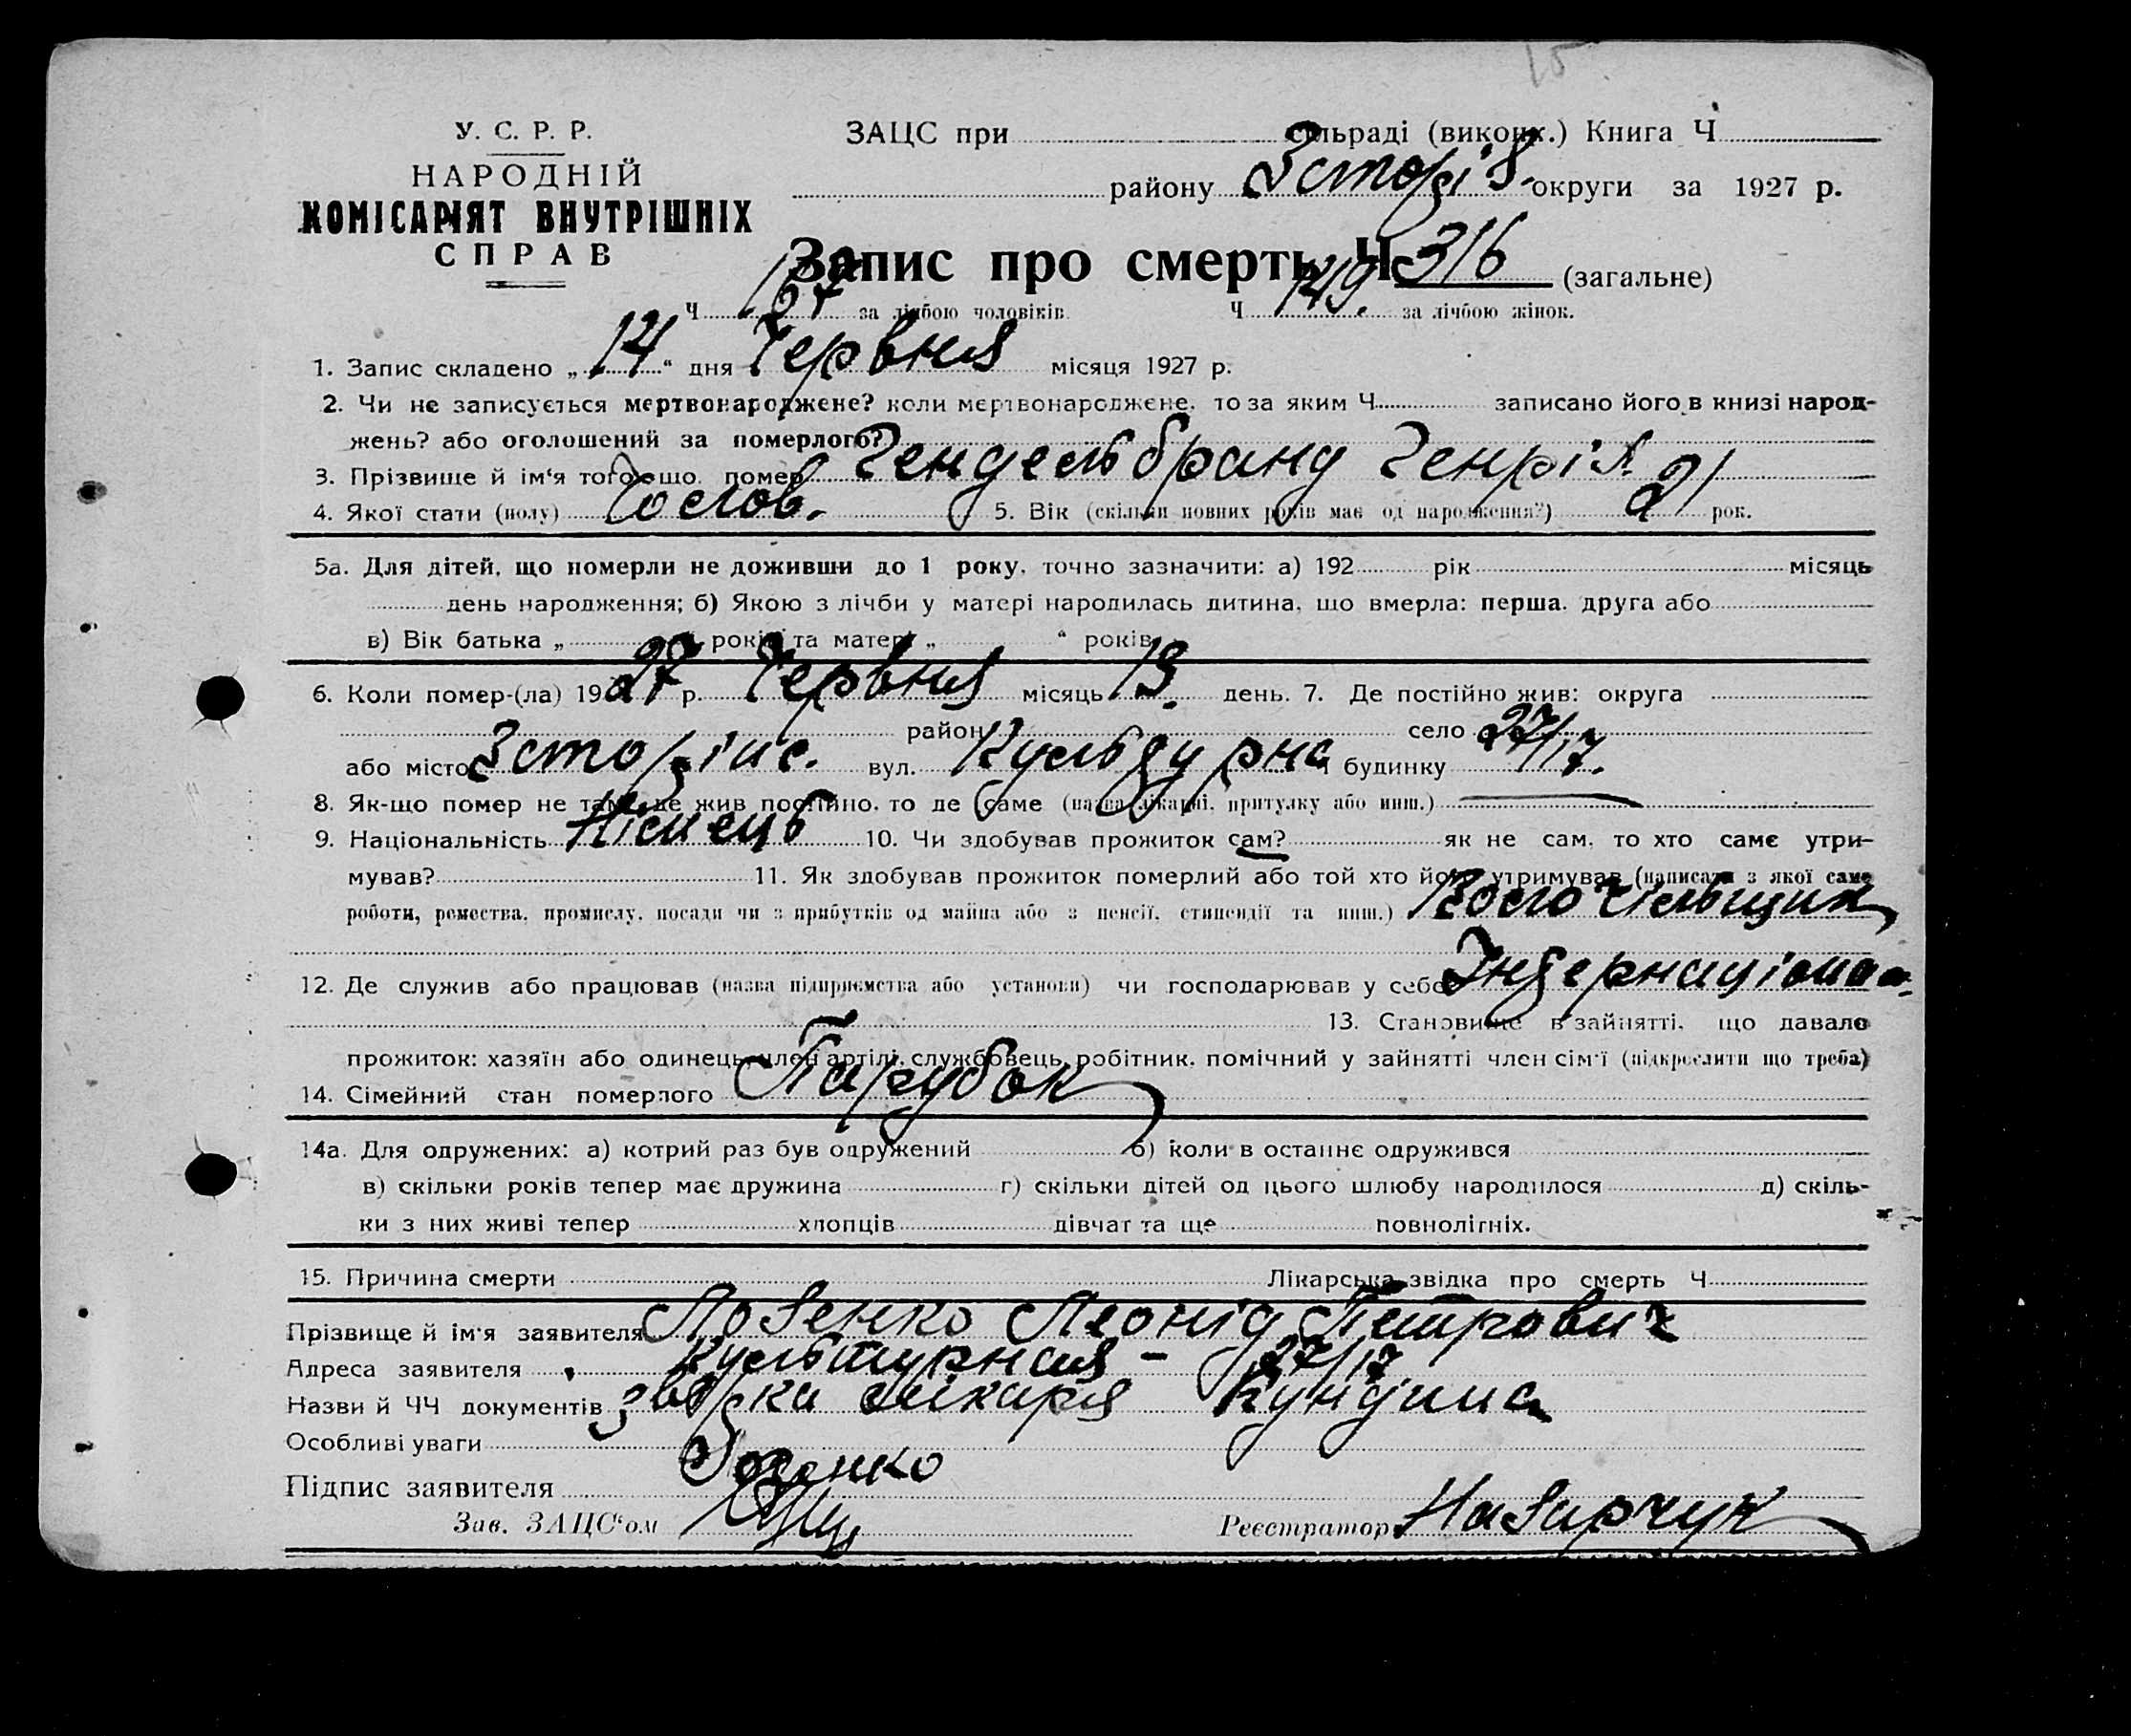 15
У. С. Р. Р.
НАРОДНІЙ
КОМІСАРІЯТ ВНУТРІШНІХ
СПРАВ
ЗАЦС при сільраді (виконк.) Книга Ч
району Зсторіз. округи за 1927 р.
Запис про смерть Ч 316 (загальне)
Ч 167 за лічбою чоловіків. Ч 149. за лічбою жінок.
1. Запис складено „14“ дня Червня місяця 1927 р.
2. Чи не записується мертвонароджене? коли мертвонароджене, то за яким Ч записано його в книзі народ-
жень? або оголошений за померлого?
3. Прізвище й ім‘я того, що помер Гендельбранд Генріх
4. Якої стати (полу) Чолов. 5. Вік (скільки повних років має од народження?) 21 рок.
5а. Для дітей, що померли не доживши до 1 року, точно зазначити: а) 192 рік місяць
день народження; б) Якою з лічби у матері народилась дитина, що вмерла: перша, друга або
в) Вік батька „ “ років та матері „ “ років
6. Коли помер-(ла) 1927 р. Червня місяць 13. день. 7. Де постійно жив: округа
район село
або місто Зсторіжс. вул. Культурна Ч будинку 27/17.
8. Як-що помер не там, де жив постійно, то де саме (назва лікарні, притулку або инш.) —
9. Національність Німець 10. Чи здобував прожиток сам? як не сам, то хто саме утри-
мував? 11. Як здобував прожиток померлий або той хто його утримував (написати з якої саме
роботи, ремества, промислу, посади чи з прибутків од майна або з пенсії, стипендії та инш.)
12. Де служив або працював (назва підприємства або установи) чи господарював у себе Інтернаціонал.
13. Становище в зайнятті, що давало
прожиток: хазяїн або одинець, член артілі, службовець, робітник, помічний у зайнятті член сім‘ї (підкреслити що треба)
14. Сімейний стан померлого Парубок
14а. Для одружених: а) котрий раз був одружений б) коли в останнє одружився
в) скільки років тепер має дружина г) скільки дітей од цього шлюбу народилося д) скіль-
ки з них живі тепер хлопців дівчат та ще повнолітніх.
15. Причина смерти Лікарська звідка про смерть Ч
Прізвище й ім‘я заявителя Лозенко Леонід Петрович
Адреса заявителя Культурная – 27/17
Назви й ЧЧ документів лікаря
Особливі уваги
Підпис заявителя Лозенко
Зав. ЗАЦС‘ом
Реєстратор Назарчук